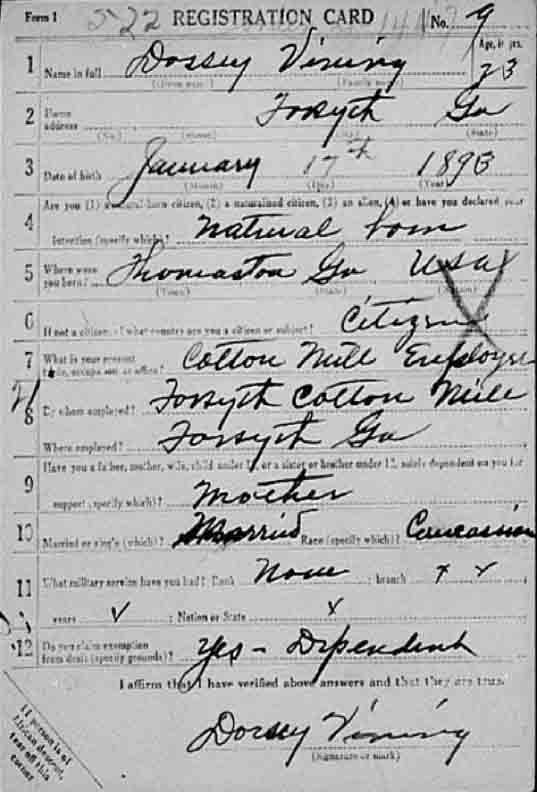 Form 1 522 REGISTRATION CARD No. 9
1 Name in full Dossey Vining Age, in yrs. 23
(Given name) (Family name)
2 Home address Forsyth Ga
(No.) (Street) (City) (State)
3 Date of birth January 17th 1893
(Month) (Day) (Year)
4 Are you (1) a natural-born citizen, (2) a naturalized citizen, (3) an alien, (4) or have you declared your
intention (specify which)? Natural born
5 Where were you born? Thomaston Ga USA
(Town) (State) (Nation)
6 If not a citizen, of what country are you a citizen or subject? Citizen
7 What is your present trade, occupation, or office? Cotton Mill Employee
21
8 By whom employed? Forsyth Cotton Mill
Where employed? Forsyth Ga
9 Have you a father, mother, wife, child under 12, or a sister or brother under 12, solely dependent on you for
support (specify which)? Mother
10 Married or single (which)? Married Race (specify which)? Caucassion
11 What military service have you had? Rank None ; branch x x ;
years v ; Nation or State x
12 Do you claim exemption from draft (specify grounds)? Yes - Dependent
I affirm that I have verified above answers and that they are true.
Dorsey Vining
(Signature or mark)
If person is of
African descent,
tear off this
corner